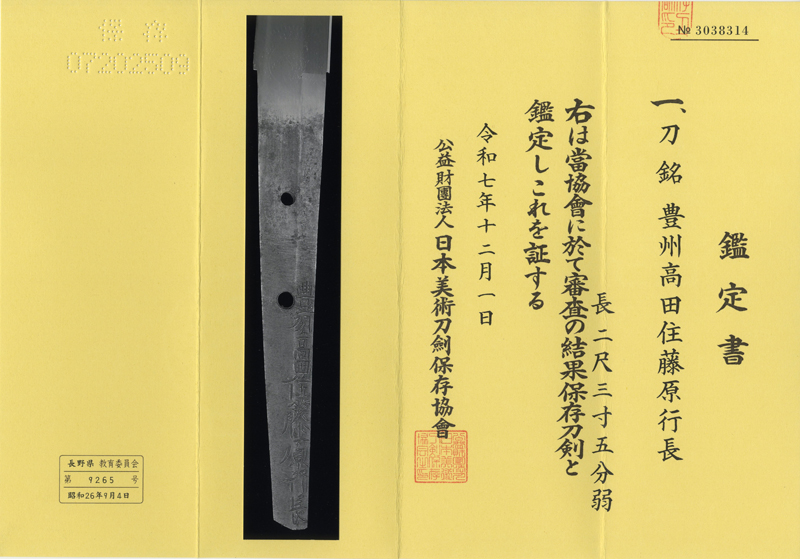 № 3038314
鑑定書
一、刀 銘 豊州高田住藤原行長
長 二尺三寸五分弱
右は當協會に於て審査の結果保存刀剣と
鑑定しこれを証する
令和七年十二月一日
公益財團法人 日本美術刀劍保存協會
保存
07202509
長野県 教育委員会
第 9265 号
昭和26年9月4日